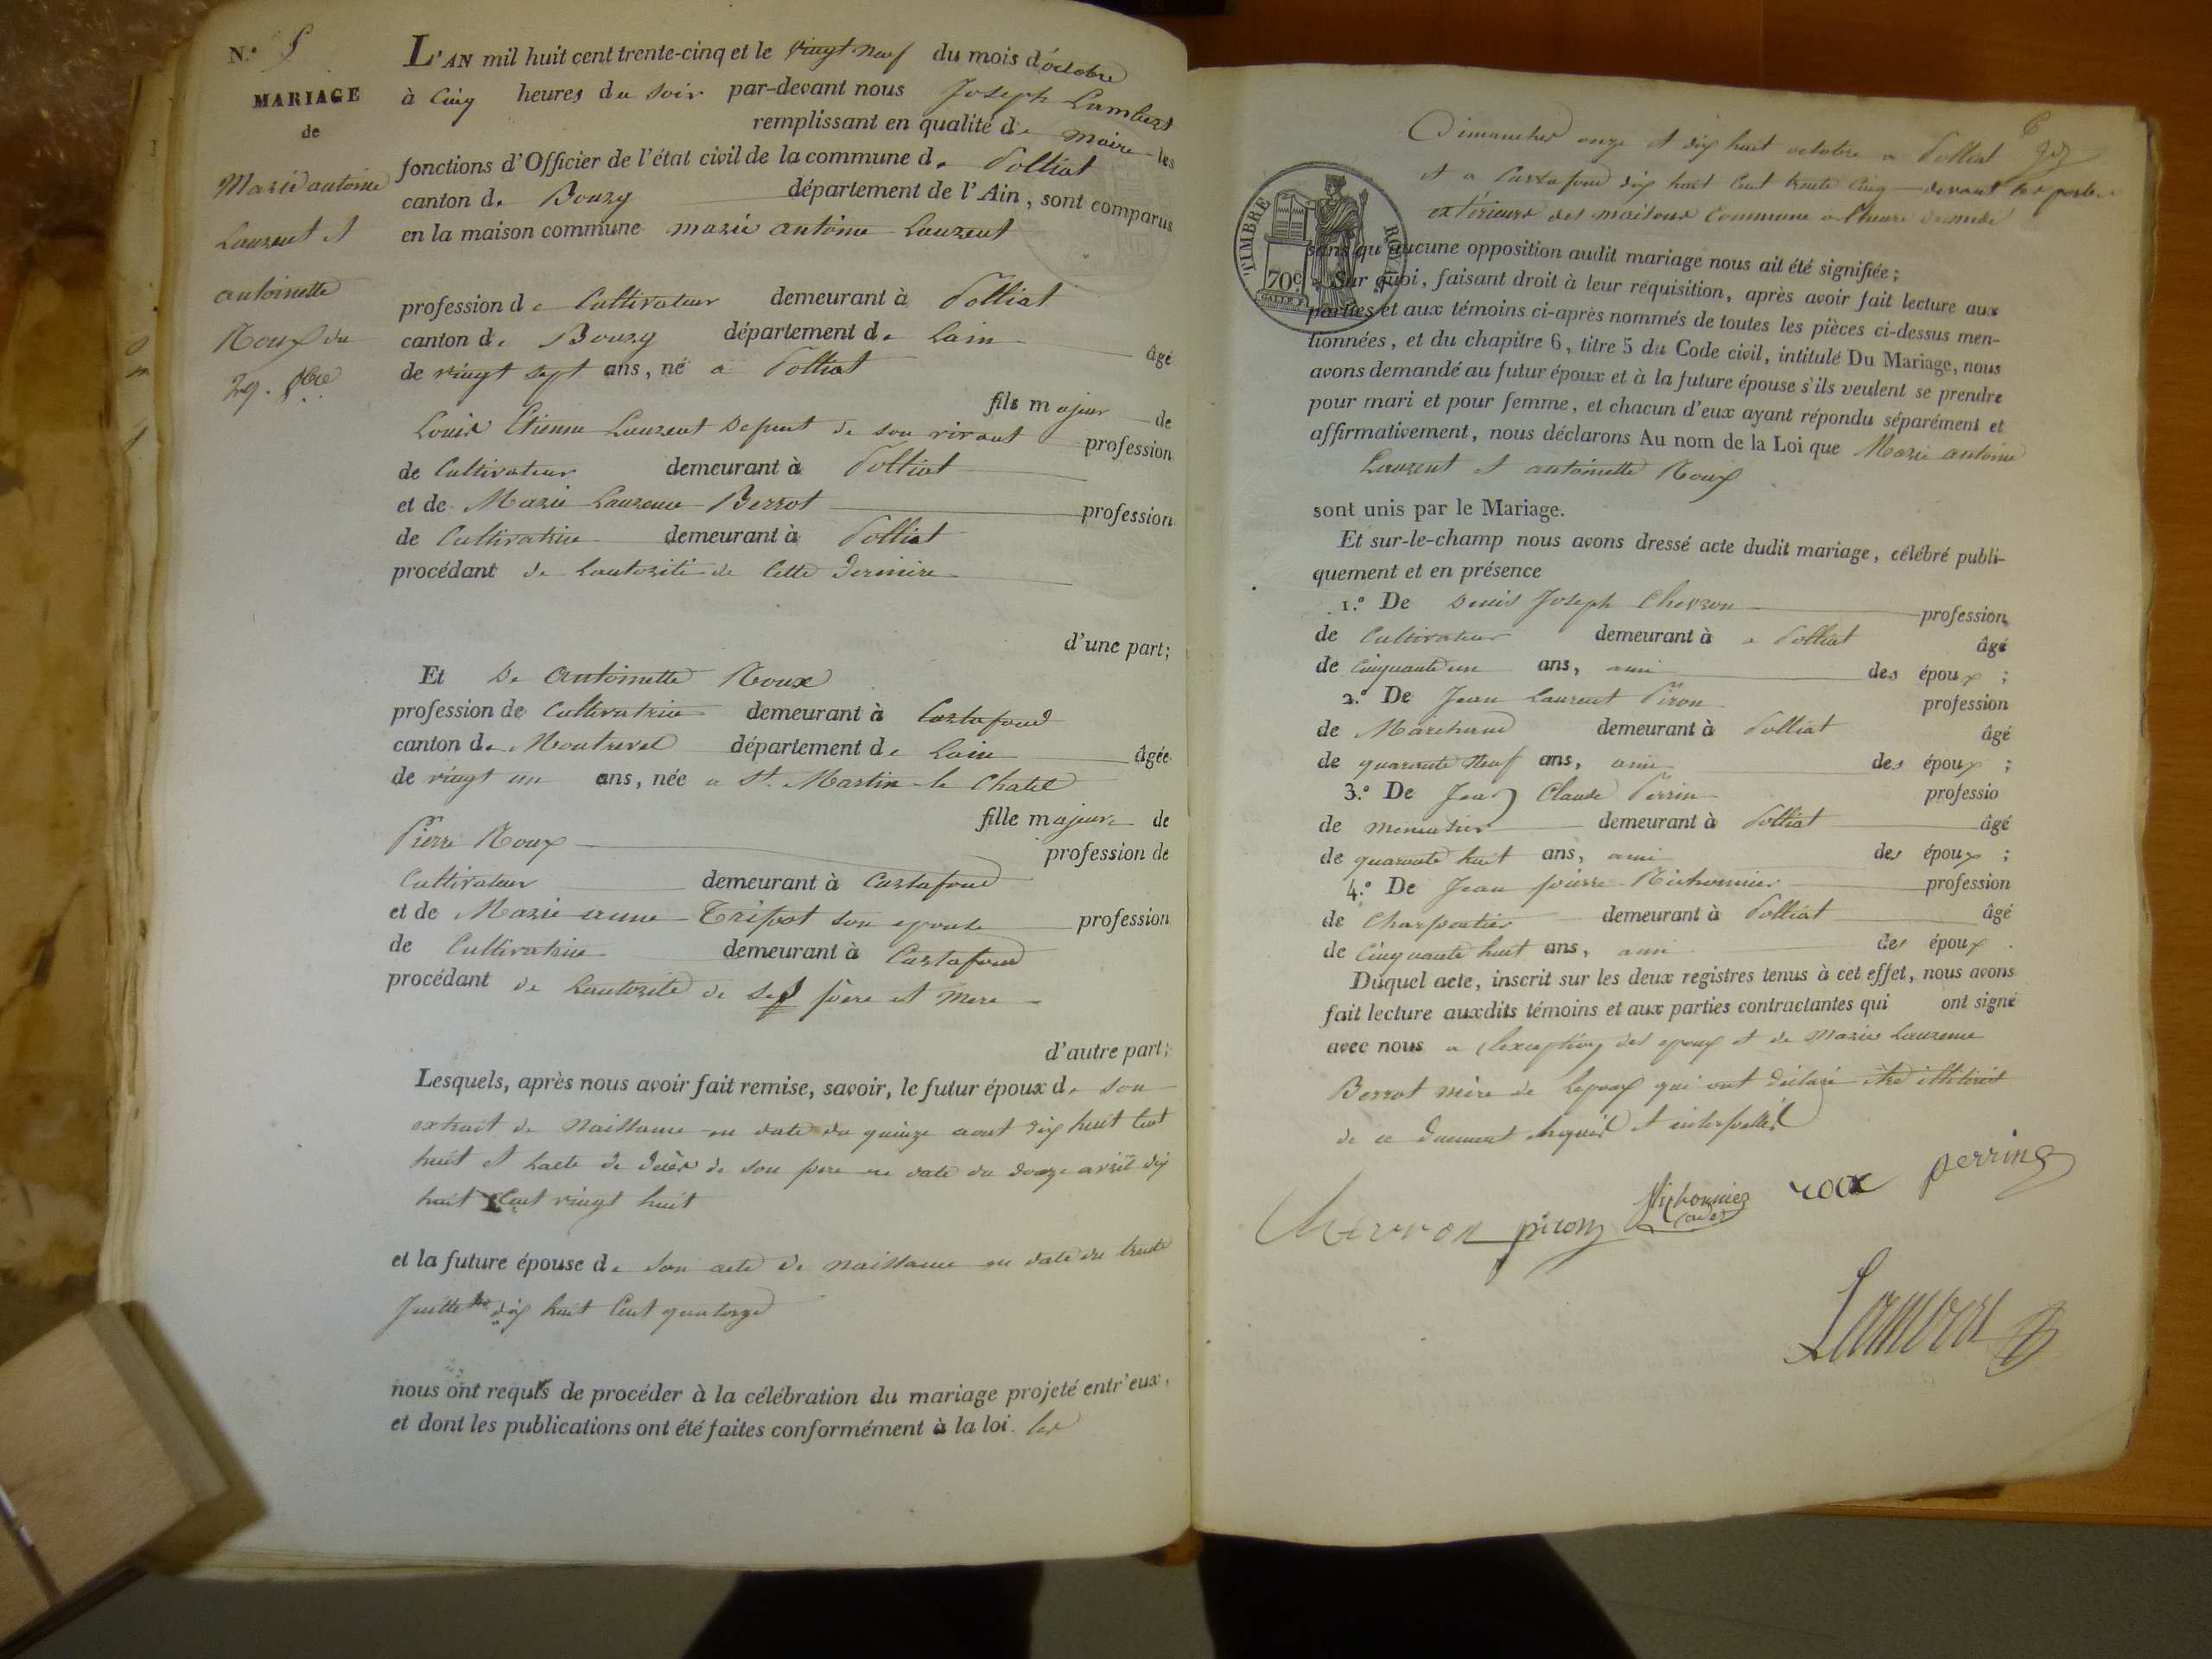 N.º 5
MARIAGE
de
Marie antoine
Laurent et
antoinette
Roux du
29. 8bre
L'AN mil huit cent trente-cinq et le vingt neuf du mois d'octobre
à Cinq heures du soir par-devant nous Joseph Lambert
remplissant en qualité de maire les
fonctions d'Officier de l'état civil de la commune de Polliat
canton de Bourg département de l'Ain, sont comparus
en la maison commune marie antoine Laurent
profession de Cultivateur demeurant à Polliat
canton de Bourg département de Lain âgé
de vingt sept ans, né a Polliat
fils majeur de
Louis Etienne Laurent defunt de son vivant profession
de Cultivateur demeurant à Polliat
et de Marie Laurence Berrot profession
de Cultivatrice demeurant à Polliat
procédant de Lautorité de Cette derniere
d'une part;
Et De antoinette Roux
profession de Cultivatrice demeurant à Curtafond
canton de Montrevel département de Lain âgée
de vingt un ans, née a St. Martin le Chatel
fille majeure de
Pierre Roux profession de
Cultivateur demeurant à Curtafond
et de Marie anne Tripot son epouse profession
de Cultivatrice demeurant à Curtafond
procédant de Lautorité de ses père et mere
d'autre part;
Lesquels, après nous avoir fait remise, savoir, le futur époux de son
extrait de Naissance en date du quinze aout dix huit Cent
huit et lacte de décès de son pere en date du douze avril dix
huit Cent vingt huit
et la future épouse de son acte de naissance en date du trente
Juillet dix huit Cent quatorze
nous ont requis de procéder à la célébration du mariage projeté entr'eux,
et dont les publications ont été faites conformément à la loi. les
6
Dimanches onze et dix huit octobre a Polliat
et a Curtafond dix huit Cent trente Cinq devant les portes
exterieure des maisons Commune a lheure de midi
TIMBRE ROYAL
70c
sans qu'aucune opposition audit mariage nous ait été signifiée;
Sur quoi, faisant droit à leur réquisition, après avoir fait lecture aux
parties et aux témoins ci-après nommés de toutes les pièces ci-dessus men-
tionnées, et du chapitre 6, titre 5 du Code civil, intitulé Du Mariage, nous
avons demandé au futur époux et à la future épouse s'ils veulent se prendre
pour mari et pour femme, et chacun d'eux ayant répondu séparément et
affirmativement, nous déclarons Au nom de la Loi que Marie antoine
Laurent et antoinette Roux
sont unis par le Mariage.
Et sur-le-champ nous avons dressé acte dudit mariage, célébré publi-
quement et en présence
1.º De Denis Joseph Chevron profession
de Cultivateur demeurant à a Polliat âgé
de Cinquante un ans, ami des époux ;
2.º De Jean Laurent Piron profession
de Marchand demeurant à Polliat âgé
de quarante Neuf ans, ami des époux ;
3.º De Jean Claude Perrin professio
de menuisier demeurant à Polliat âgé
de quarante huit ans, ami des époux ;
4.º De Jean pierre Nichonnier profession
de Charpentier demeurant à Polliat âgé
de Cinquante huit ans, ami des époux .
Duquel acte, inscrit sur les deux registres tenus à cet effet, nous avons
fait lecture auxdits témoins et aux parties contractantes qui ont signé
avec nous a lexception des epoux et de Marie Laurence
Berrot mère de lepoux qui ont déclaré être illétérés
de ce duement requis et interpellés
Chevron piron Nichonnier roux perrin
Lambert